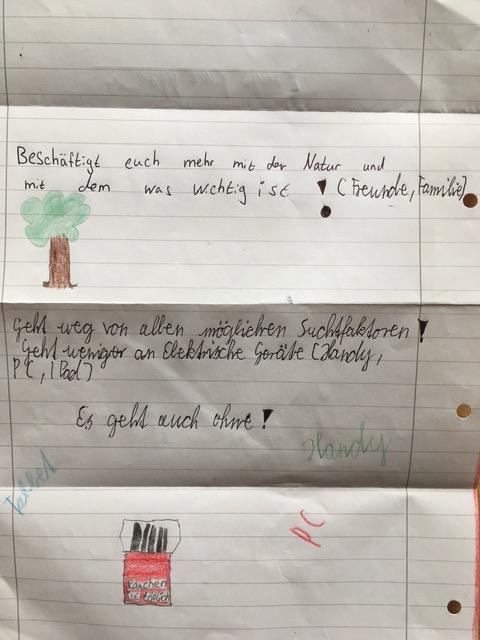 Beschäftigt euch mehr mit der Natur und
mit dem was wichtig ist ! (Freunde, Familie)
Geht weg von allen möglichen Suchtfaktoren !
Geht weniger an Elektrische Geräte (Handy,
PC, IPad)
Es geht auch ohne !
Handy
Tablet
PC
Rauchen
ist tödlich